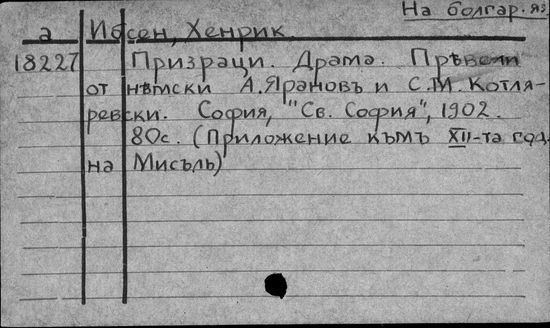 На болгар. яз.
а Ибсен, Хенрик.
18227 Призраци. Драма. Прѣвели
от нѣмски А. Ярановъ и С.М. Котля-
ревски. София, "Св. София", 1902.
80с. (Приложение къмъ XII-та год.
на Мисъль)